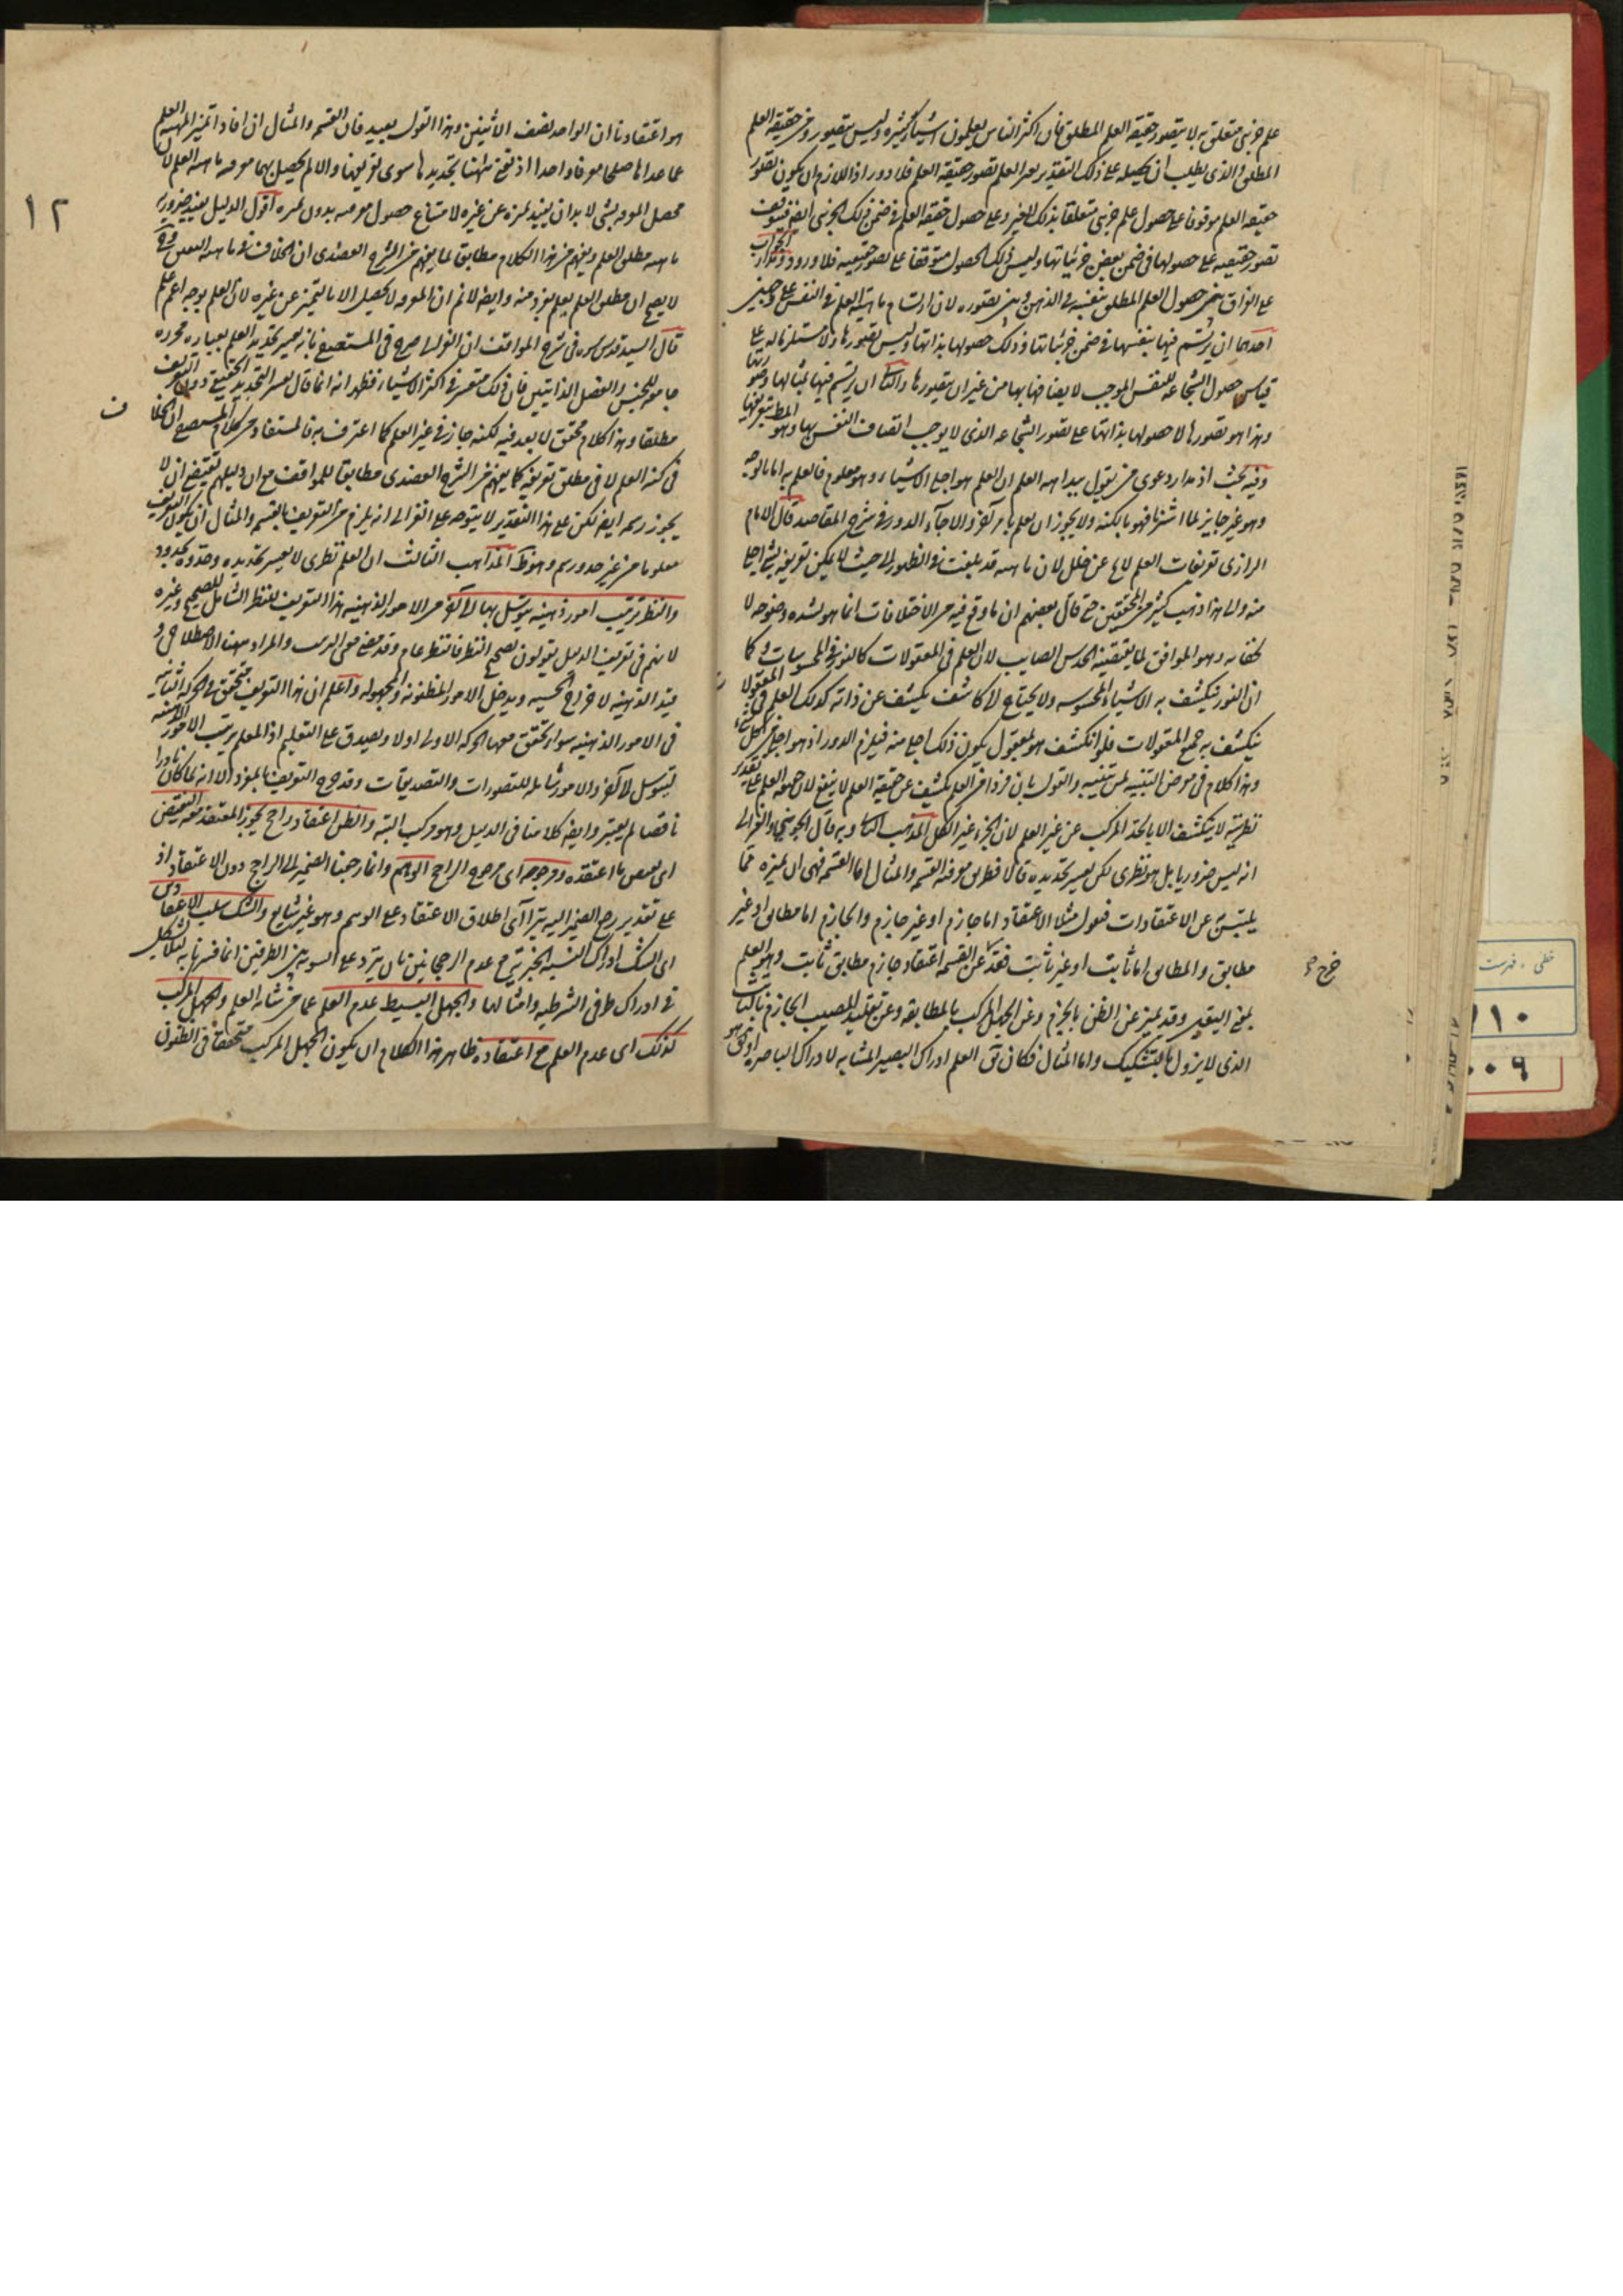 علم جزئي متعلق به لا يتصور حقيقة العلم المطلق فان اكثر الناس يعلمون اشياء كثيرة وليس يتصورون حقيقة العلم
المطلق والذي يطلب ان يحصله على ذلك التقدير بغير العلم تصور حقيقة العلم فلا دور اذ اللازم ان يكون تصور
حقيقة العلم موقوفا على حصول علم جزئي متعلقا بذلك الغير وعلى حصول حقيقة العلم في ضمن ذلك الجزئي ايضا فيتوقف
تصور حقيقته على حصولها في ضمن بعض جزئياتها وليس ذلك الحصول متوقفا على تصور حقيقته فلا دور ومدار الجواب
على الفرق بين حصول العلم المطلق بنفسه في الذهن وبين تصوره لان ارتسام ماهية العلم في النفس على وجهين
احدهما ان يرتسم فيها بنفسها في ضمن جزئياتها وذلك حصولها بذاتها وليس تصورها ولا مستلزما له على
قياس حصول الشجاعة للنفس الموجب لاتصافها بها من غير ان يتصورها والثاني ان يرتسم فيها بمثالها وصورتها
وهذا هو تصورها لا حصولها بذاتها على تصور الشجاعة الذي لا يوجب اتصاف النفس بها وهو المط بتعريفها
وفيه بحث اذ مدار دعوى من يقول ببداهة العلم ان العلم هو اجلى الاشياء وهو معلوم فالعلم به اما بالوجه
وهو غير جايز لما اشتهر فهو بالكنه ولا يجوز ان يعلم بامر آخر والا جاء الدور وفي شرح المقاصد قال الامام
الرازي تعريفات العلم لا يخ عن خلل لان ماهيته قد بلغت في الظهور الى حيث لا يمكن تعريفه بشئ اجلى
منه والى هذا ذهب كثير من المحققين حتى قال بعضهم ان ما وقع فيه من الاختلافات انما هو لشدة وضوحه لا
لخفائه وهو الموافق لما يقتضيه الحدس الصايب لان العلم في المعقولات كالنور في المحسوسات فكما
ان النور ينكشف به الاشياء المحسوسة ولا يحتاج الى كاشف يكشف عن ذاته كذلك العلم في المعقولات
ينكشف به جميع المعقولات فلو انكشف هو بمعقول يكون ذلك اجلى منه فيلزم الدور اذ هو اجلى من كل شئ
وهذا كلام في معرض التنبيه لمن تنبه والقول بان فردا من العلم يكشف عن حقيقة العلم لا ينفع لان حقيقة العلم على تقدير
نظريته لا ينكشف الا بالحد المركب عن غير العلم لان الجزء غير الكل المذهب الثاني وبه قال الجويني والغزالي
انه ليس ضروريا بل هو نظري لكن يعسر تحديده قالا فطريق معرفته القسمة والمثال اما القسمة فهي ان نميزه عما
يلتبس به من الاعتقادات فنقول مثلا الاعتقاد اما جازم او غير جازم والجازم اما مطابق او غير
مطابق والمطابق اما ثابت او غير ثابت فقد خرج عن القسمة اعتقاد جازم مطابق ثابت وهو العلم
بمعنى اليقين وقد تميز عن الظن بالجزم وعن الجهل المركب بالمطابقة وعن تقليد المصيب الجازم بالثابت
الذي لا يزول بالتشكيك واما المثال فكان يق العلم ادراك البصيرة المشابه لادراك الباصرة او يق هو
خرج صح
١٢
هو اعتقادنا ان الواحد نصف الاثنين وهذا القول بعيد فان القسمة والمثال ان افادا تميز المهية العلم
عما عداها صلحا معرفا واحدا اذ نعني ههنا بتحديدها سوى تعريفها والا لم يحصل بهما معرفة ماهية العلم لان
محصل المعرفة بشئ لا بد ان يفيد تميزه عن غيره لامتناع حصول معرفته بدون تميزه اقول الدليل يفيد ضرورة
ماهية مطلق العلم ويفهم من هذا الكلام مطابقا لما يفهم من الشرح العضدي ان الخلاف في ماهية اليقين
لا يصح ان مطلق العلم يعلم بفرد منه وايضا لا نم ان المعرفة لا يحصل الا بالتميز عن غيره لان العلم بوجه اعم علم
قال السيد قدس سره في شرح المواقف ان الغزالي صرح في المستصفى بانه يعسر تحديد العلم بعبارة محررة
جامعة للجنس والفصل الذاتيين فان ذلك متعسر في اكثر الاشياء فظهر انه انما قال بعسر التحديد الحقيقي دون التعريف
مطلقا وهذا كلام محقق لا بعد فيه لكنه جار في غير العلم كما اعترف به فالمستفاد من كلام المستصفى ان الخلاف
في كنه العلم لا في مطلق تعريفه كما يفهم من الشرح العضدي مطابقا للمواقف مع ان دليلهم يقتضي ان لا
يجوز رسمه ايضا لكن على هذا التقدير لا يتوجه على الغزالي انه يلزم من التعريف بالقسمة والمثال ان يكون التعريف
معلوما من غير حد ورسم وهو ظ المذاهب الثالث ان العلم نظري لا يعسر تحديده وحدوه بحدود
والنظر ترتيب امور ذهنية يتوسل بها الى آخر من الامور الذهنية هذا التعريف للنظر الشامل للصحيح وغيره
لانهم في تعريف الدليل يقولون بصحيح النظر فالنظر عام وقد مضى معنى الترتيب والمراد ههنا الاصطلاحي و
قيد الذهنية لاخراج الحسية ويدخل الامور المظنونة والمجهولة واعلم ان هذا التعريف يتحقق في الحركة الثانية
في الامور الذهنية سواء تحقق معها الحركة الاولى اولا ويصدق على التعليم اذ المعلم يرتب الامور الذهنية
ليتوسل لآخر والامور شاملة للتصورات والتصديقات وقد خرج التعريف بالمفرد الا انه لما كان نادرا
ناقصا لم يعتبر وايضا كلامنا في الدليل وهو مركب البتة والظن اعتقاد راجح يجوز المعتقد معه النقيض
اى نقيض ما اعتقده ومرجوحه اى مرجوح الراجح الوهم وانما رجعنا الضمير الى الراجح دون الاعتقاد اذ
على تقدير رجع الضمير اليه يتراآى اطلاق الاعتقاد على الوهم وهو غير شايع والشك سلب الاعتقادين
اى الشك ادراك النسبة الخبرية مع عدم الرجحانين بان يتردد على السوية بين الطرفين انما فسرنا به لئلا يشكل
في ادراك طرفي الشرطية وامثالها والجهل البسيط عدم العلم عما من شانه العلم والجهل المركب
كذلك اى عدم العلم مع اعتقاده ظاهر هذا الكلام ان يكون الجهل المركب متحققا في الظنون
ف
خطي ، فهرست